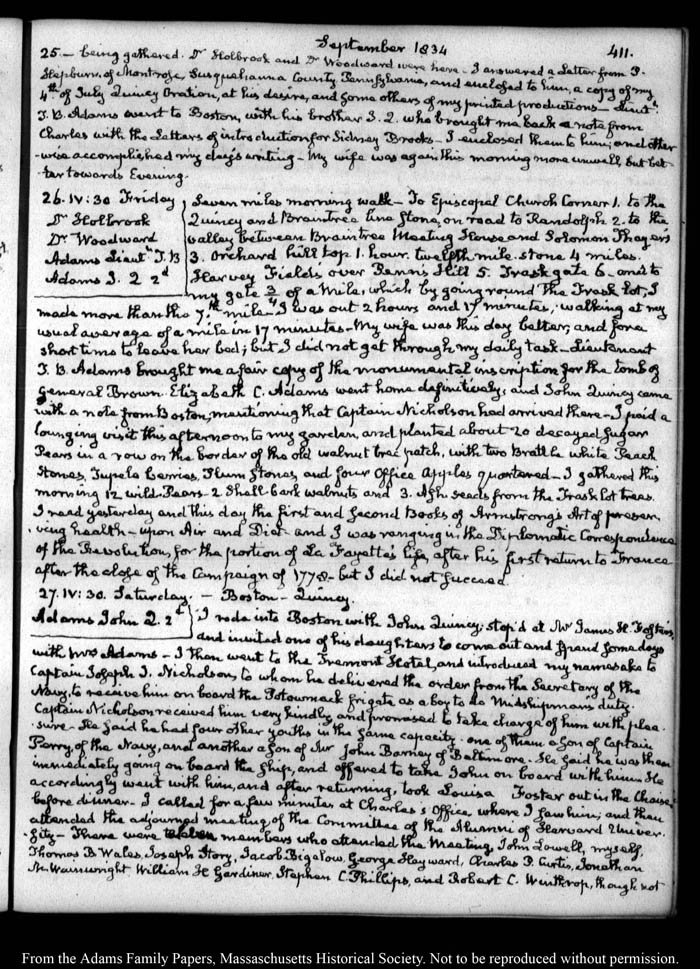 September 1834
411.
25 — being gathered. Dr Holbrook and Dr Woodward were here — I answered a Letter from I.
Hepburn, of Montrose, Susquehanna County Pennsylvania, and enclosed to him, a copy of my
4th of July Quincy Oration, at his desire, and some others of my printed productions — Lieut.t
I. B. Adams went to Boston, with his brother J. 2. who brought me back a note from
Charles with the Letters of introduction for Sidney Brooks — I enclosed them to him; and other
-wise accomplished my day's writing — My wife was again this morning more unwell, but bet-
ter towards Evening.
26. IV:30 Friday
Dr Holbrook
Dr Woodward
Adams Lieut.t I. B
Adams J. 2 2d
Seven miles morning walk — To Episcopal Church Corner 1. to the
Quincy and Braintree line stone, on road to Randolph 2. to the
valley between Braintree Meeting House and Solomon Thayer's
3. Orchard hill top 1. hour. twelfth mile-stone 4 miles.
Harvey Field's over Penn's Hill 5. Trask gate 6 — and to
my gate 3/4 of a Mile, which by going round the Trask lot, I
made more than the 7th mile — I was out 2 hours and 17 minutes, walking at my
usual average of a mile in 17 minutes — My wife was this day better, and for a
short time to leave her bed; but I did not get through my daily task — Lieutenant
I. B. Adams brought me a fair copy of the monumental inscription for the tomb of
General Brown. Elizabeth C. Adams went home definitively; and John Quincy came
with a note from Boston, mentioning that Captain Nicholson had arrived there — I paid a
lounging visit this afternoon to my garden, and planted about 20 decayed Sugar
Pears in a row on the border of the old walnut tree patch, with two Brattle white Peach
Stones, Tupelo berries, Plum stones, and four Office Apples quartered — I gathered this
morning 12 wild Pears — 2 Shellbark walnuts and 3. Ash seeds from the Trask lot trees.
I read yesterday and this day the first and second Books of Armstrong's Art of preser-
ving health — upon Air and Diet — and I was ranging in the Diplomatic Correspondence
of the Revolution, for the portion of La Fayette's life, after his first return to France
after the close of the Campaign of 1778 — but I did not succeed
27. IV:30. Saturday. — Boston — Quincy.
Adams John Q. 2d
I rode into Boston with John Quincy; stop'd at Mr James H. Foster's,
and invited one of his daughters to come out and spend some days
with Mrs Adams — I then went to the Tremont Hotel, and introduced my namesake to
Captain Joseph J. Nicholson, to whom he delivered the order from the Secretary of the
Navy, to receive him on board the Potowmack frigate as a boy to do Midshipman's duty.
Captain Nicholson received him very kindly, and promised to take charge of him with plea-
sure — He said he had four other youths in the same capacity. one of them a Son of Captain
Perry, of the Navy, and another a Son of Mr John Barney of Baltimore. He said he was then
immediately going on board the Ship, and offered to take John on board with him — He
accordingly went with him, and after returning, took Louisa Foster out in the Chaise
before dinner — I called for a few minutes at Charles's Office where I saw him; and then
attended the adjourned meeting of the Committee of the Alumni of Harvard Univer-
sity — There were members who attended the Meeting, John Lowell, myself,
Thomas B Wales, Joseph Story, Jacob Bigelow, George Hayward, Charles P. Curtis, Jonathan
M. Wainwright William H Gardiner, Stephen C. Phillips, and Robert C. Winthrop, though not
From the Adams Family Papers, Massachusetts Historical Society. Not to be reproduced without permission.